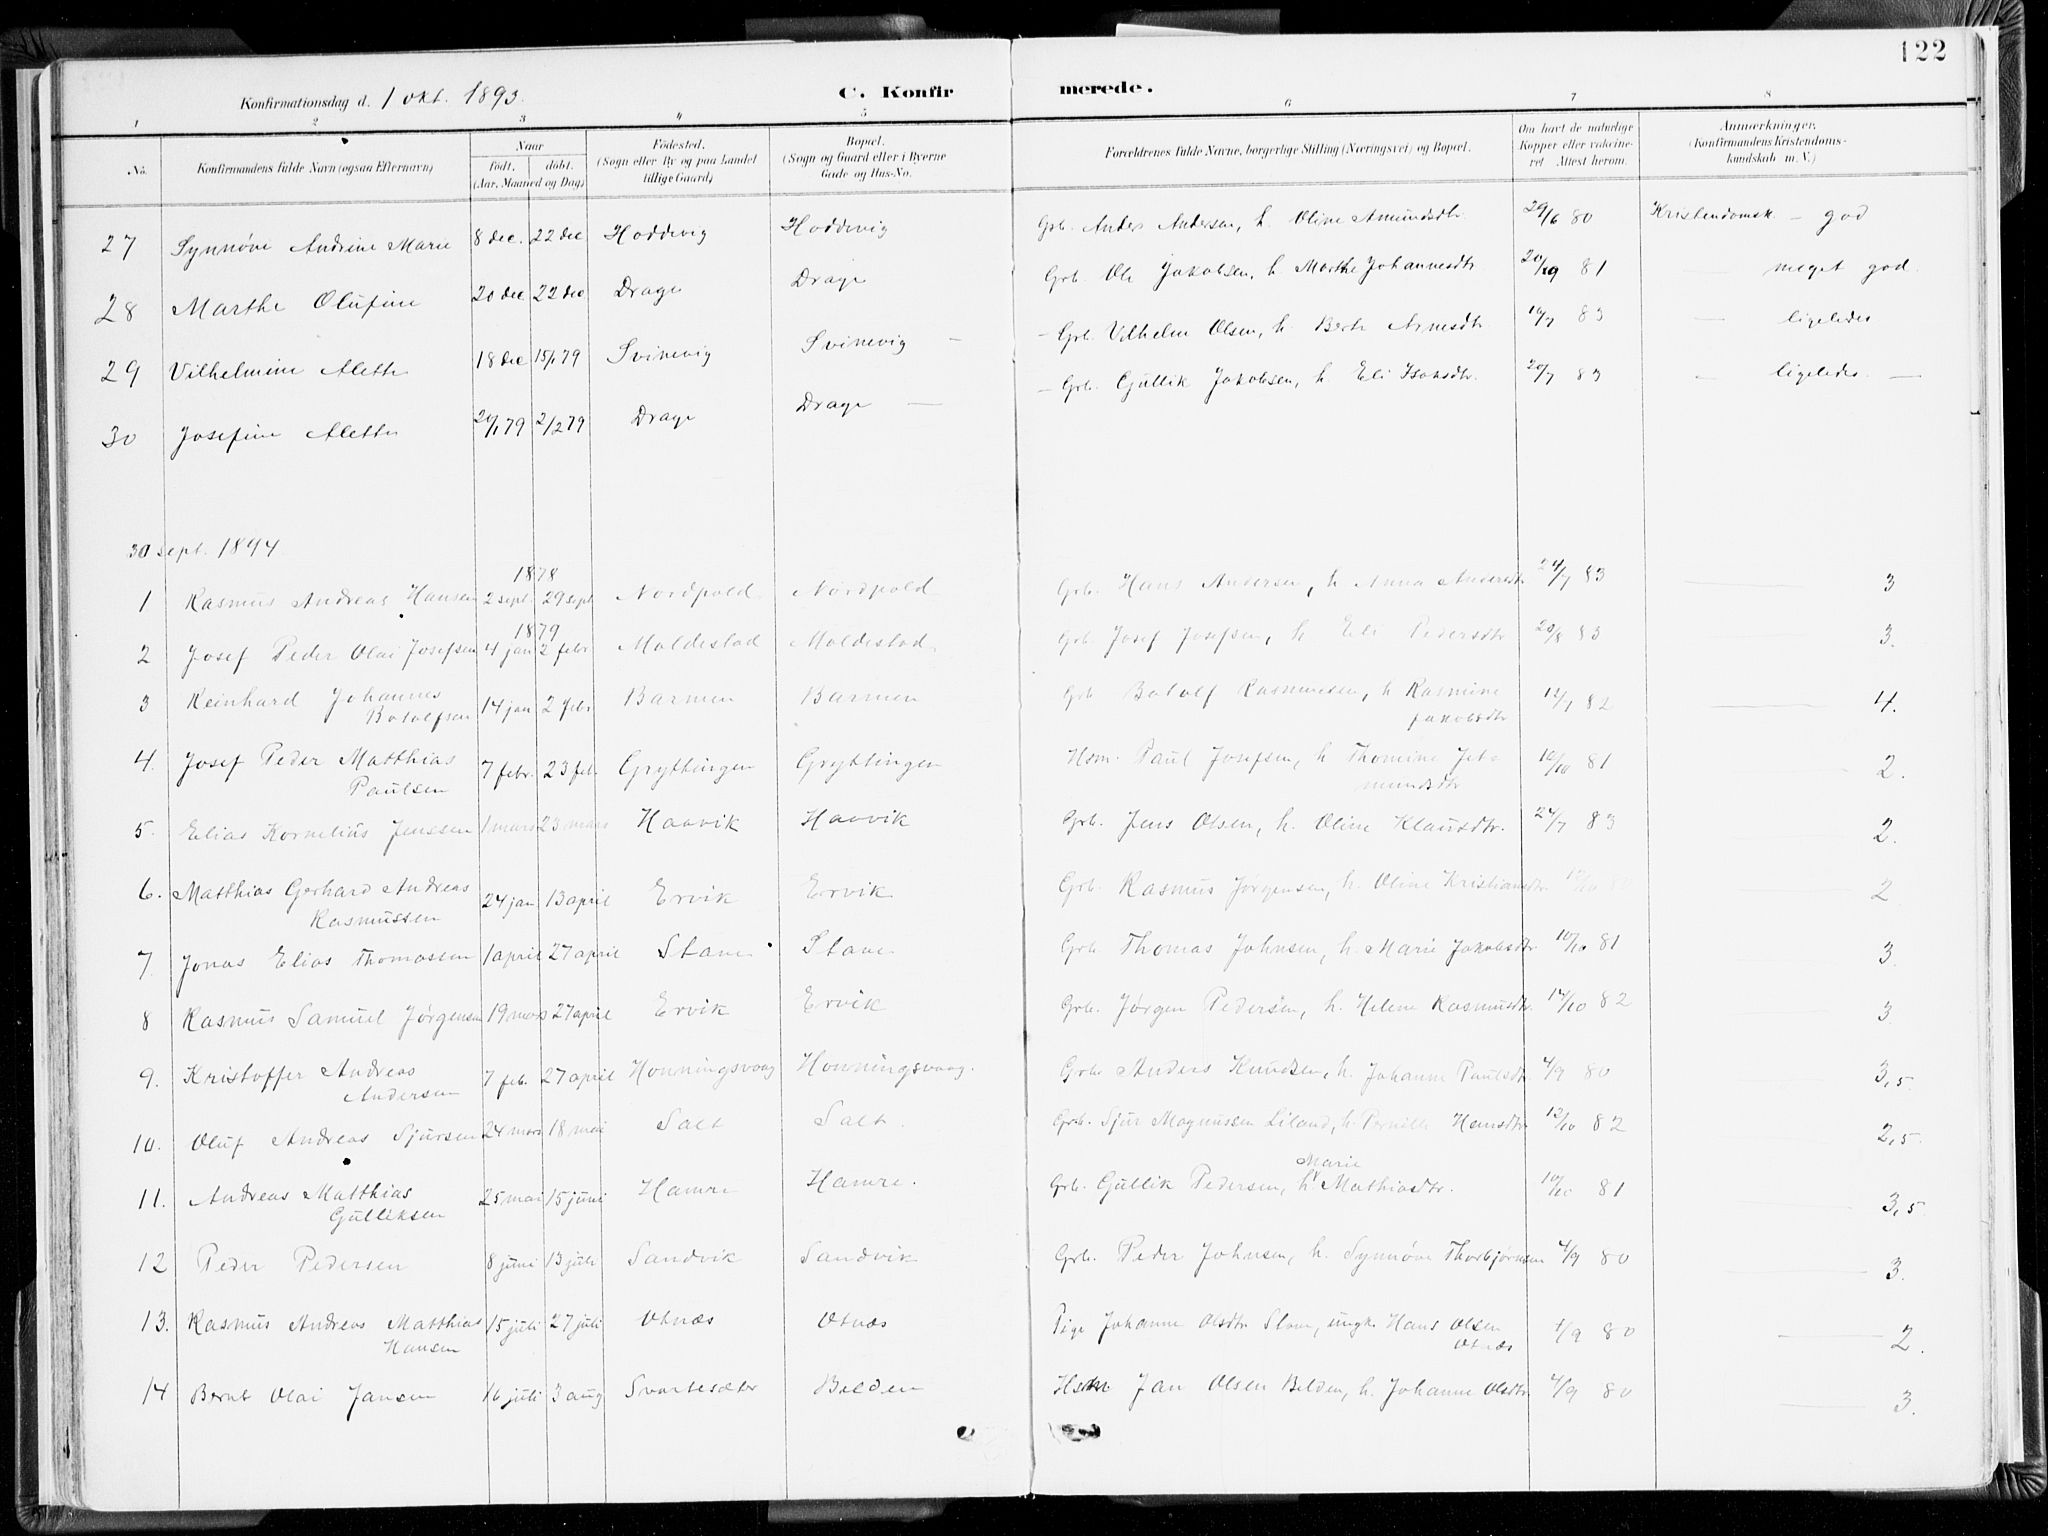 122
Konfirmationsdag d. 1 okt. 1893.
C. Konfirmerede.
1 2 3 4 5 6 7 8
No.
Konfirmandens fulde Navn (ogsaa Efternavn)
Naar
født, døbt.
(Aar, Maaned og Dag)
Födested.
(Sogn eller By og paa Landet
tillige Gaard)
Bopæl.
(Sogn og Gaard eller i Byerne
Gade og Hus-No.
Forældrenes fulde Navne, borgerlige Stilling (Næringsvei) og Bopæl.
Om havt de naturlige
Kopper eller vakcine-
ret Attest herom.
Anmærkninger.
(Konfirmandens Kristendoms-
kundskab m. V.)
27 Synnøve Andrine Marie 8 dec. 22 dec Hoddevig Hoddevig Grb. Anders Andersen, h. Oline Amundsdtr. 29/6 80 Kristendomsk. — god
28 Marthe Olufine 20 dec 22 dec Drage Drage Grb. Ole Jakobsen, h. Marthe Johannesdtr 81 — meget god.
29 Vilhelmine Alette 18 dec 15/1 79 Svinevig Svinevig — — Grb. Vilhelm Olsen, h. Berte Arnesdtr. 83 — ligeledes
30 Josefine Alette 20/1 79 2/2 79 Drage Drage — — Grb. Gullik Jakobsen, h. Eli Isaksdtr. 20/7 83 — ligeledes. —
30 sept. 1894.
1878
1 Rasmus Andreas Hansen 2 sept. 29 sept Nordpold Nordpold Grb. Hans Andersen, h. Anna Andersdtr 24/7 83 3
1879
2 Josef Peder Olai Josefsen 4 jan 2 febr Moldestad Moldestad. Grb. Josef Josefsen, h. Eli Pedersdtr 20/8 83 3.
3 Reinhard Johannes
Botolfsen 14 jan 2 febr Barmen Barmen Grb Botolf Rasmussen, h Rasmine
Jakobsdtr 12/7 82 4.
4. Josef Peder Matthias
Paulsen 7 febr. 23 feb. Grytlingen Grytlingen Hsm. Paul Josefsen, h Thomine Jet-
mundsdtr 10/10 81 2.
5. Elias Kornelius Jenssen 1 mars 23 mars Haavik Haavik Grb. Jens Olsen, h. Oline Klausdtr. 24/7 83 2.
6. Matthias Gerhard Andreas
Rasmussen 24 jan 13 april Ervik Ervik Grb. Rasmus Jørgensen, h. Oline Kristiansdtr. 2
7 Jonas Elias Thomassen 1 april 27 april Stave Stave Grb. Thomas Johnsen, h. Marie Jakobsdtr 10/10 81 3.
8 Rasmus Samuel Jørgensen 19 mars 27 april Ervik Ervik Grb. Jørgen Pedersen, h. Helene Rasmusdtr. 82 3.
9. Kristoffer Andreas
Andersen 7 feb. 27 april Honningsvaag Honningsvaag. Grb. Anders Knudsen, h. Johanne Paulsdtr. 4/9 80 3,5.
10. Oluf Andreas Sjursen 24 mars 18 mai Salt Salt. Grb. Sjur Magnussen Liland, h. Pernille Hansdtr. 12/10 82 2,5.
11. Andreas Matthias
Gulliksen 25 mai 15 juni Hamre Hamre. Grb. Gullik Pedersen, h. Marie Mathiasdtr. 10/10 81 3,5.
12 Peder Pedersen 8 juni 13 juli Sandvik Sandvik Grb. Peder Johnsen, h. Synnøve Thorbjørnsen 4/9 80 3.
13. Rasmus Andreas Matthias
Hansen 15 juli 27 juli Otnæs Otnæs Pige Johanne Olsdtr Stave, ungk. Hans Olsen
Otnæs 4/9 80 2.
14 Bernt Olai Jansen 16 juli 3 aug Svortesæter Belden Hsm Jan Olsen Belden, h. Johanne Olsdtr. 4/9 80 3.